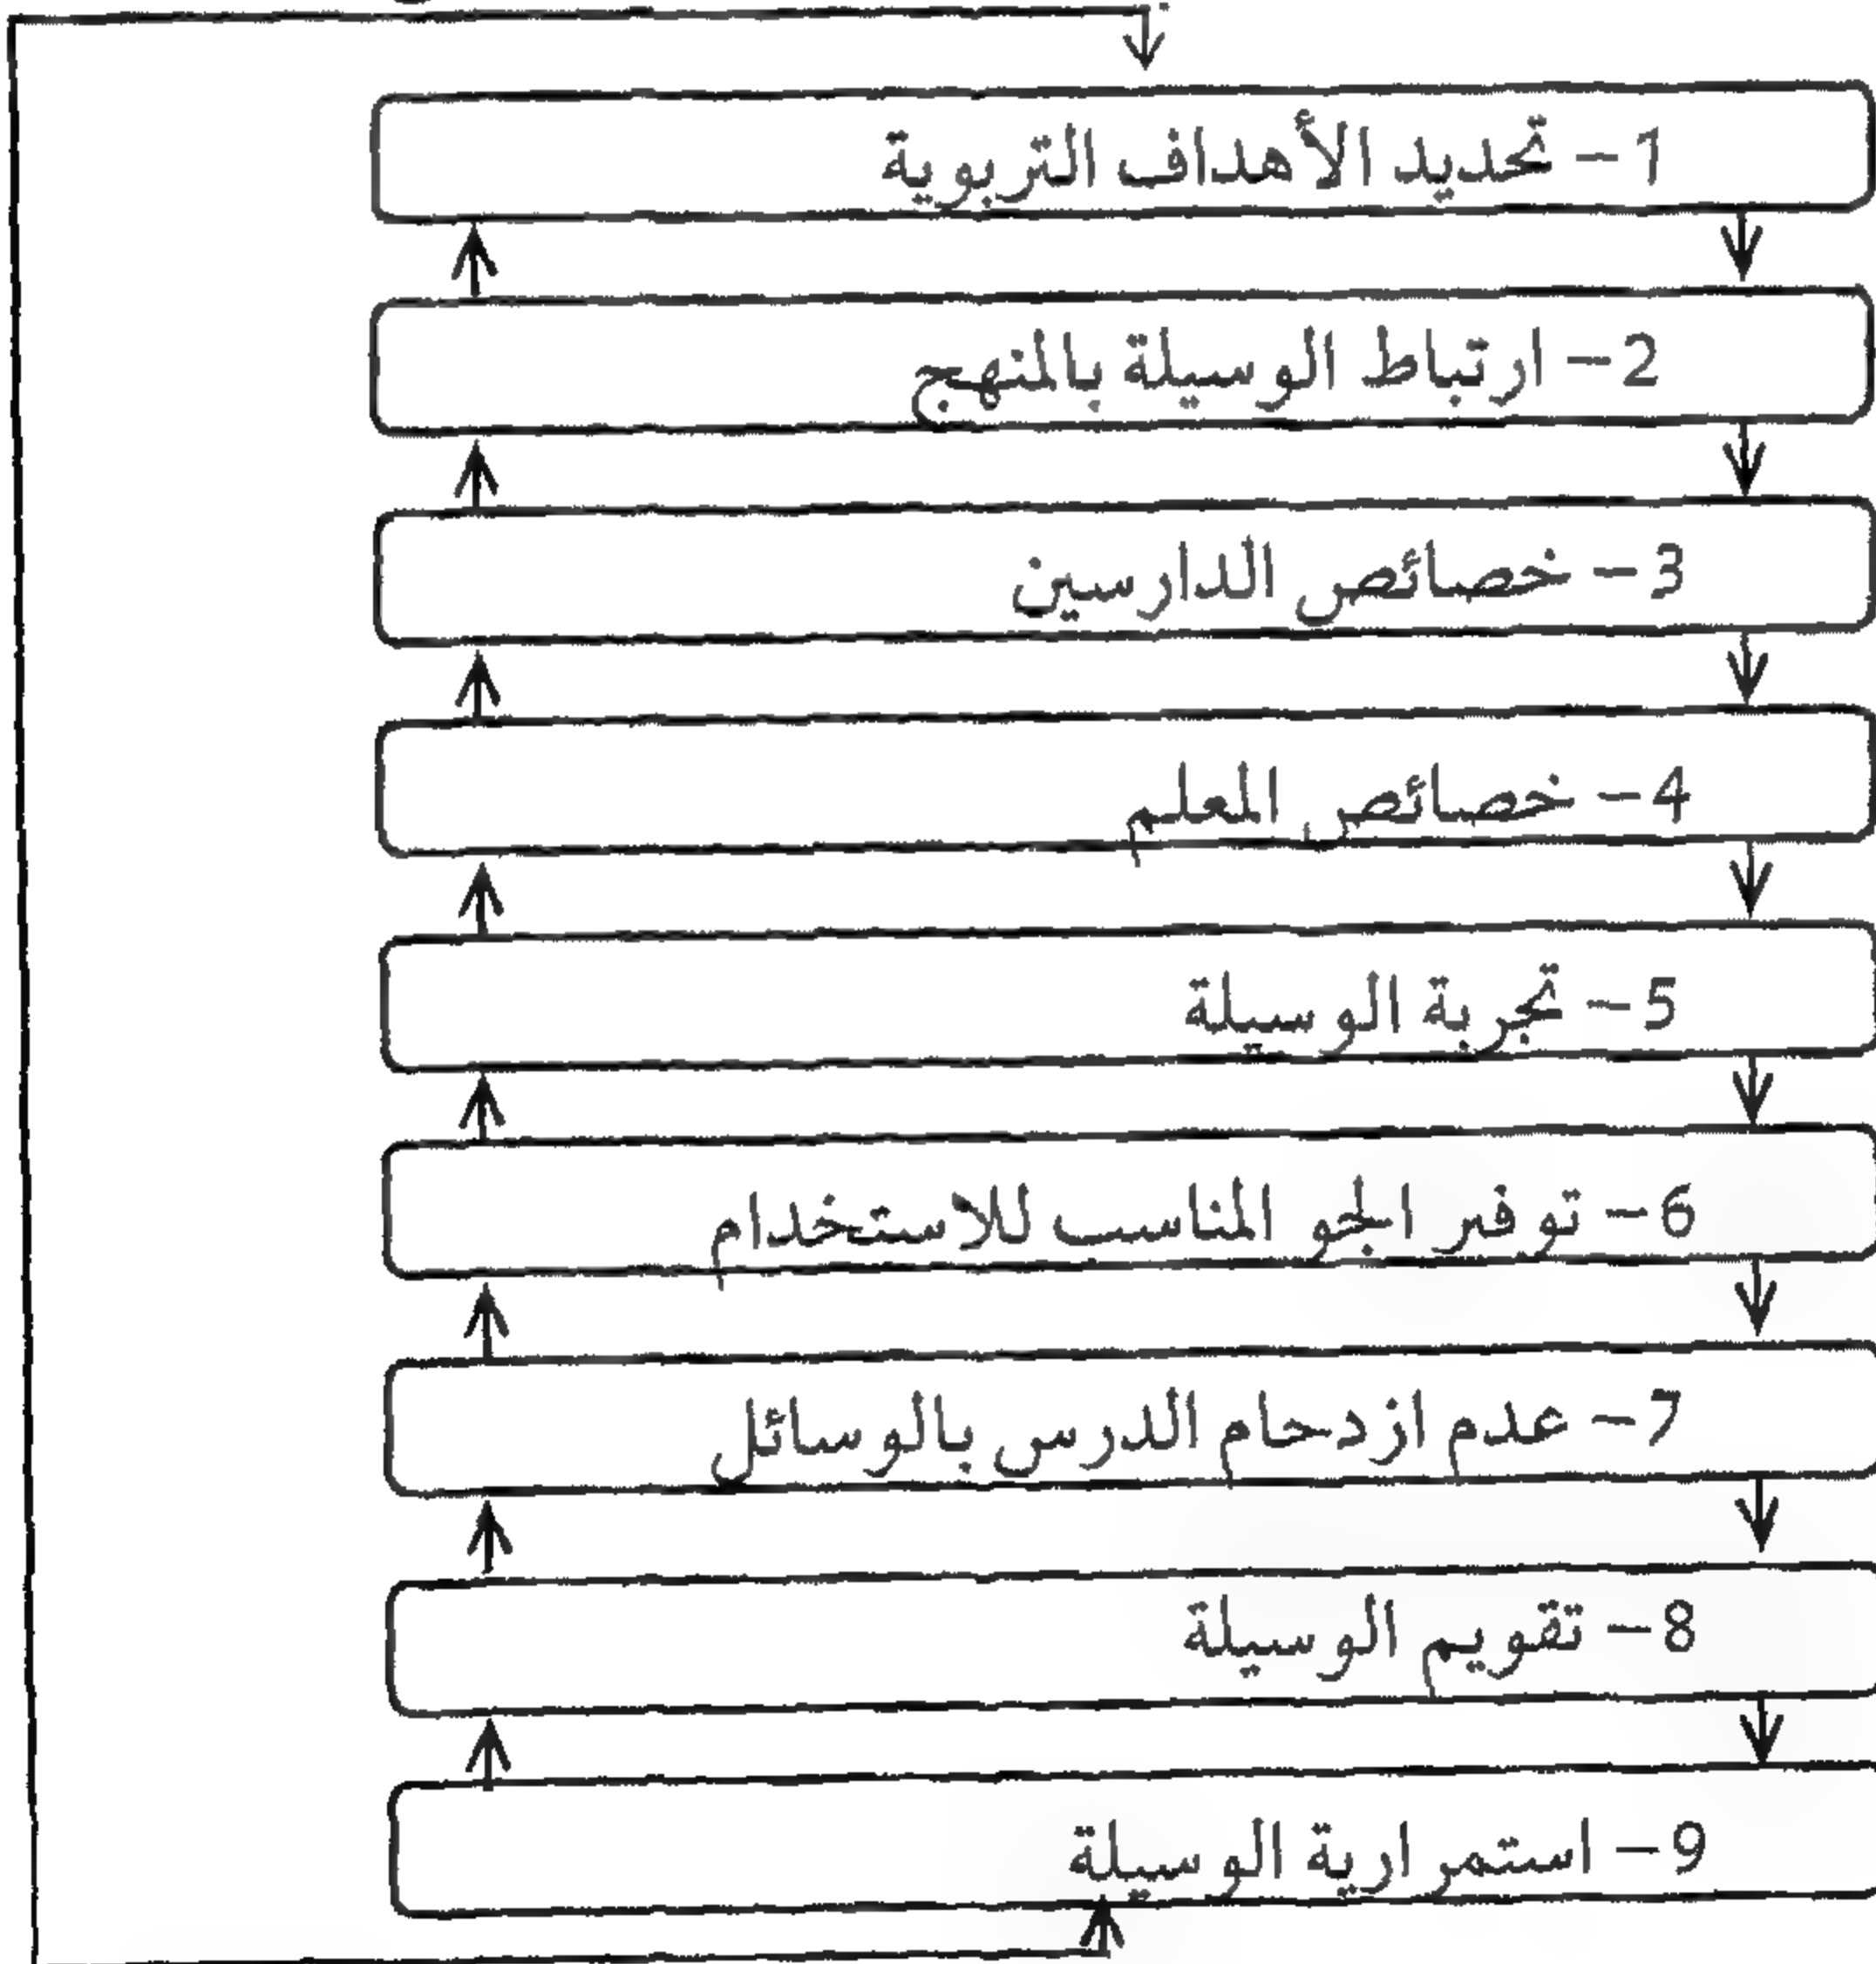 1- تحديد الأهداف التربوية
2- ارتباط الوسيلة بالمنهج
3- خصائص الدارسين
4- خصائص المعلم
5- تجربة الوسيلة
6- توفير الجو المناسب للاستخدام
7- عدم ازدحام الدرس بالوسائل
8- تقويم الوسيلة
9- استمرارية الوسيلة